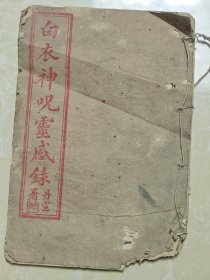 白衣神呪靈感錄